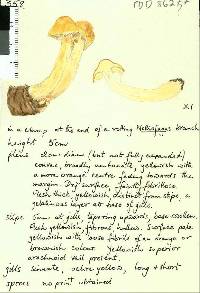 358
X1
in a clump at the end of a rotting Nothofagus branch
height 5cm
pileus 2cm diam (but not fully expanded)
convex, broadly umbonate, yellowish with
a more orange centre fading towards the
margin. Dry surface, faintly fibrillose.
Flesh thick, yellowish, distinct from stipe, a
gelatinous layer at base of gills.
stipe 5mm at gills tapering upwards, base swollen.
Flesh yellowish, fibrous, hollow. Surface pale
yellowish with loose fibrils of an orange or
brownish colour. Yellowish superior
arachnoid veil present.
gills sinuate, ochre yellow, long & short
spores no print obtained